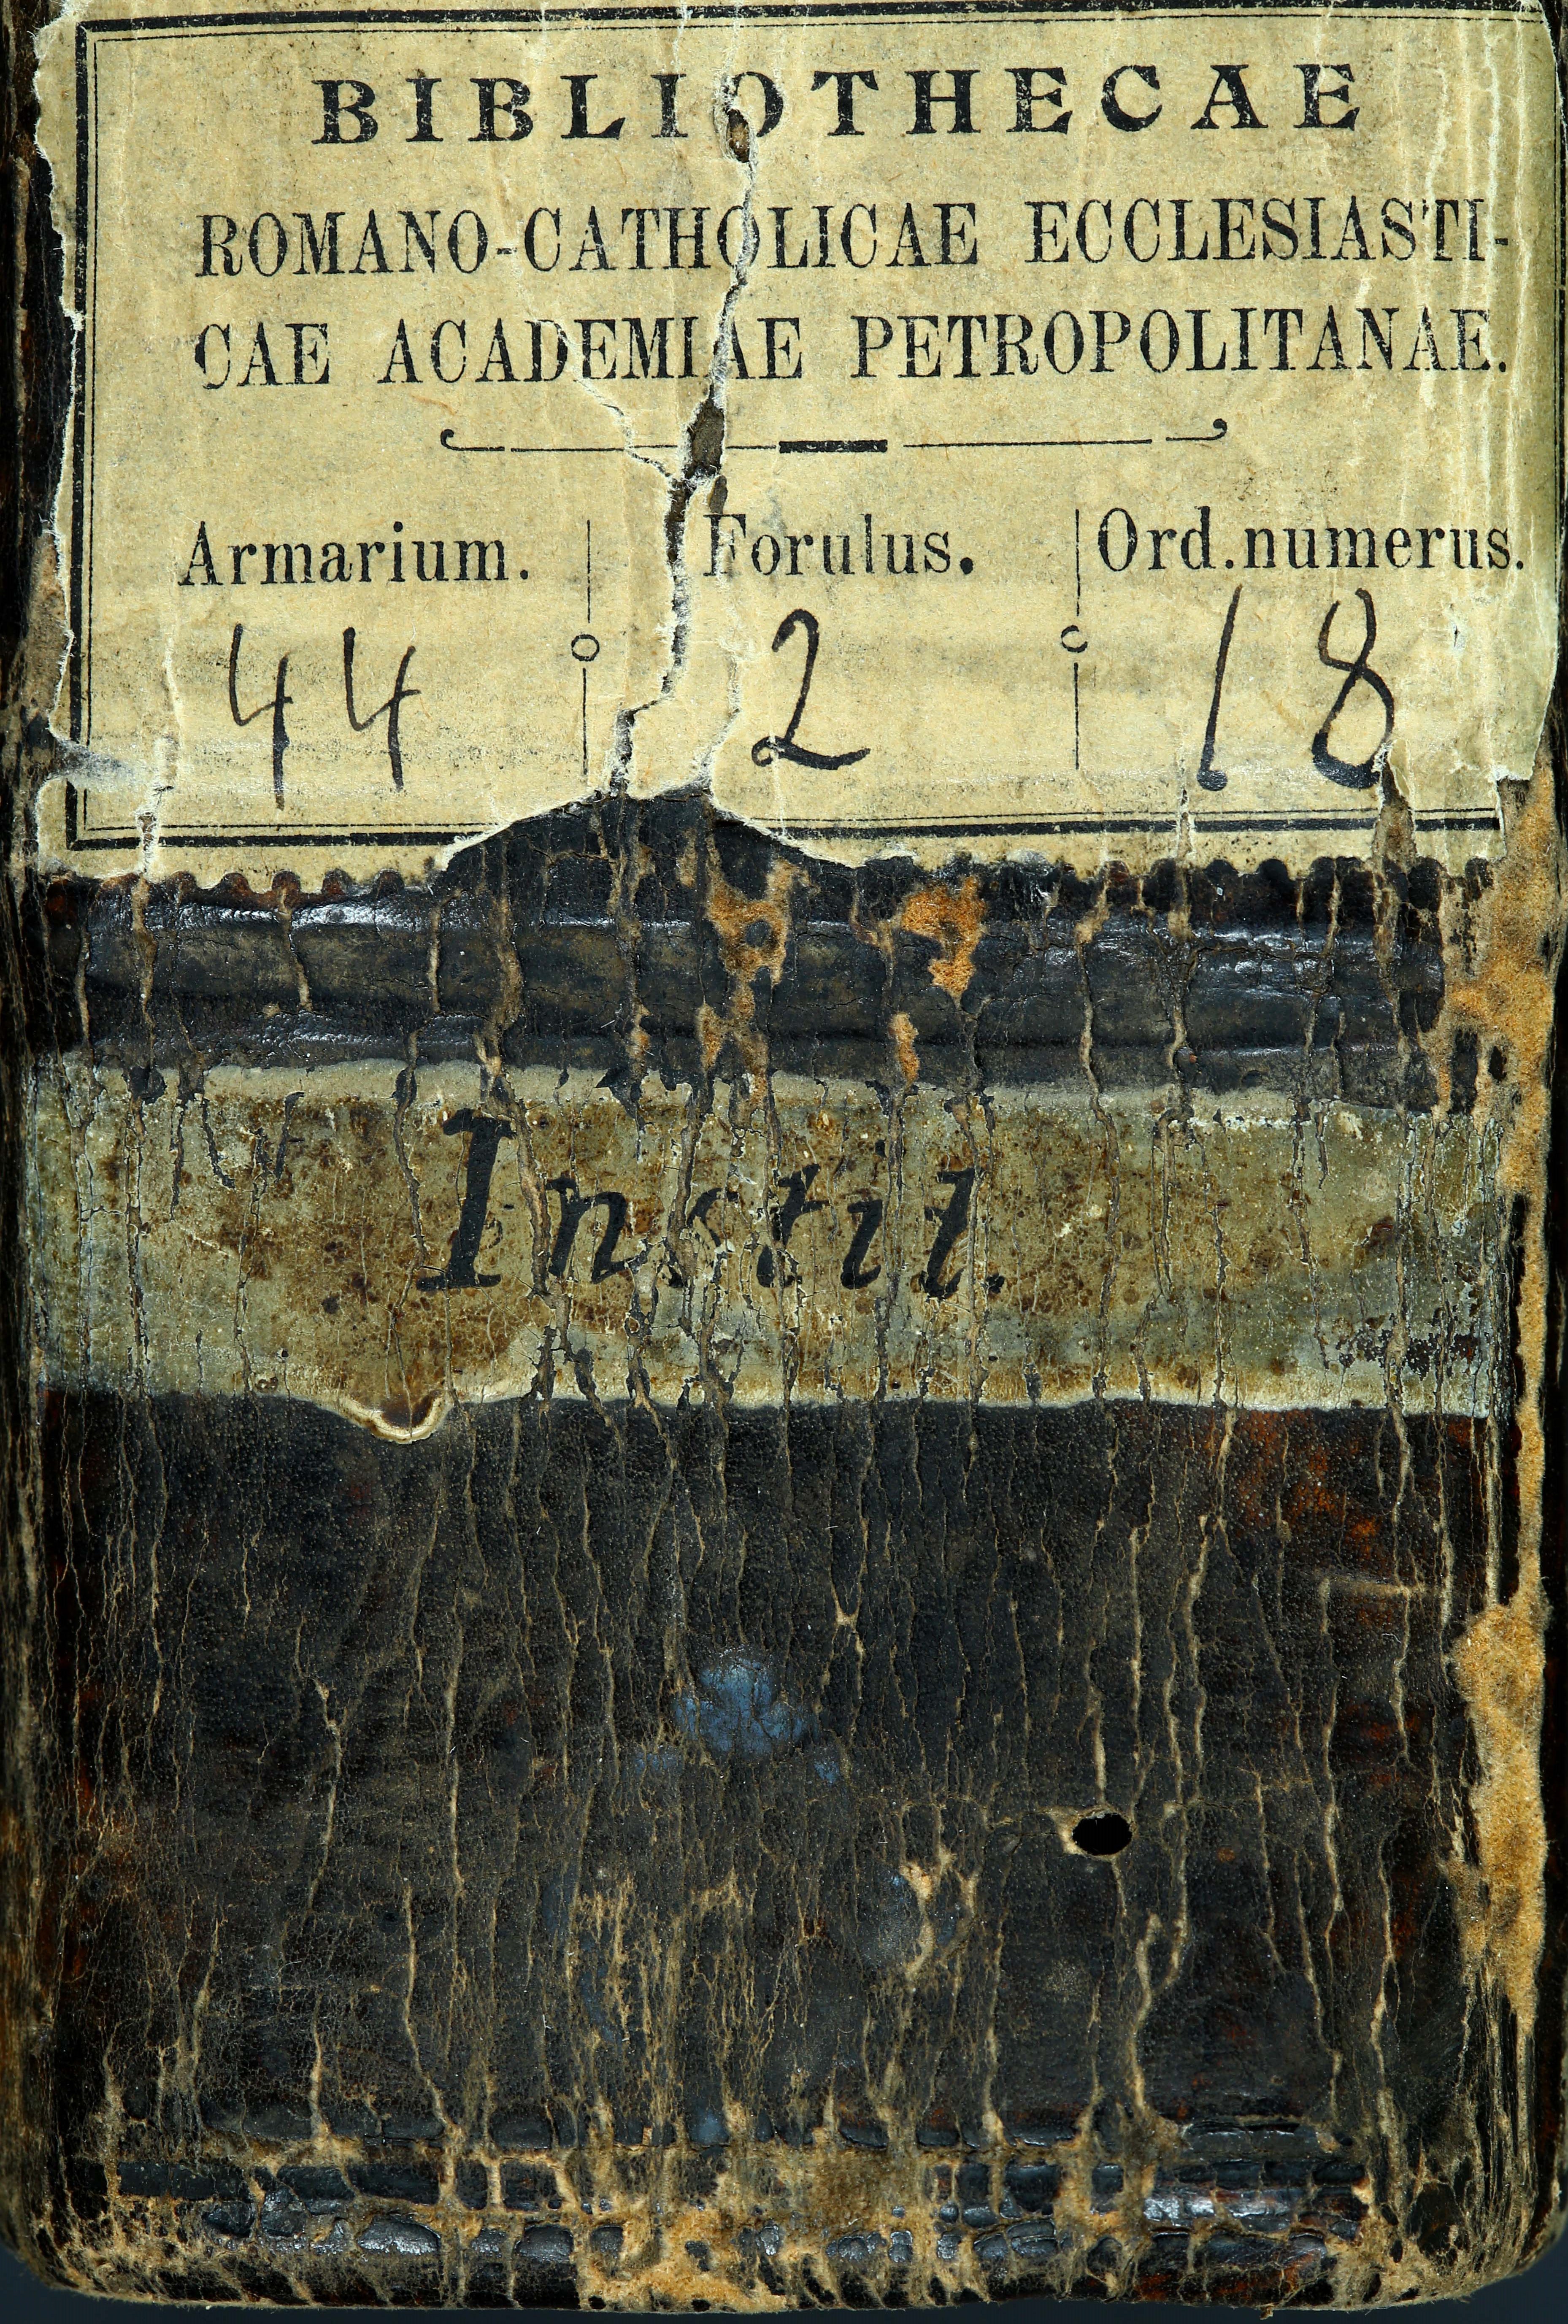 BIBLIOTHECAE
ROMANO-CATHOLICAE ECCLESIASTI-
CAE ACADEMIAE PETROPOLITANAE.
Armarium. Forulus. Ord. numerus.
44 2 18
Instit.